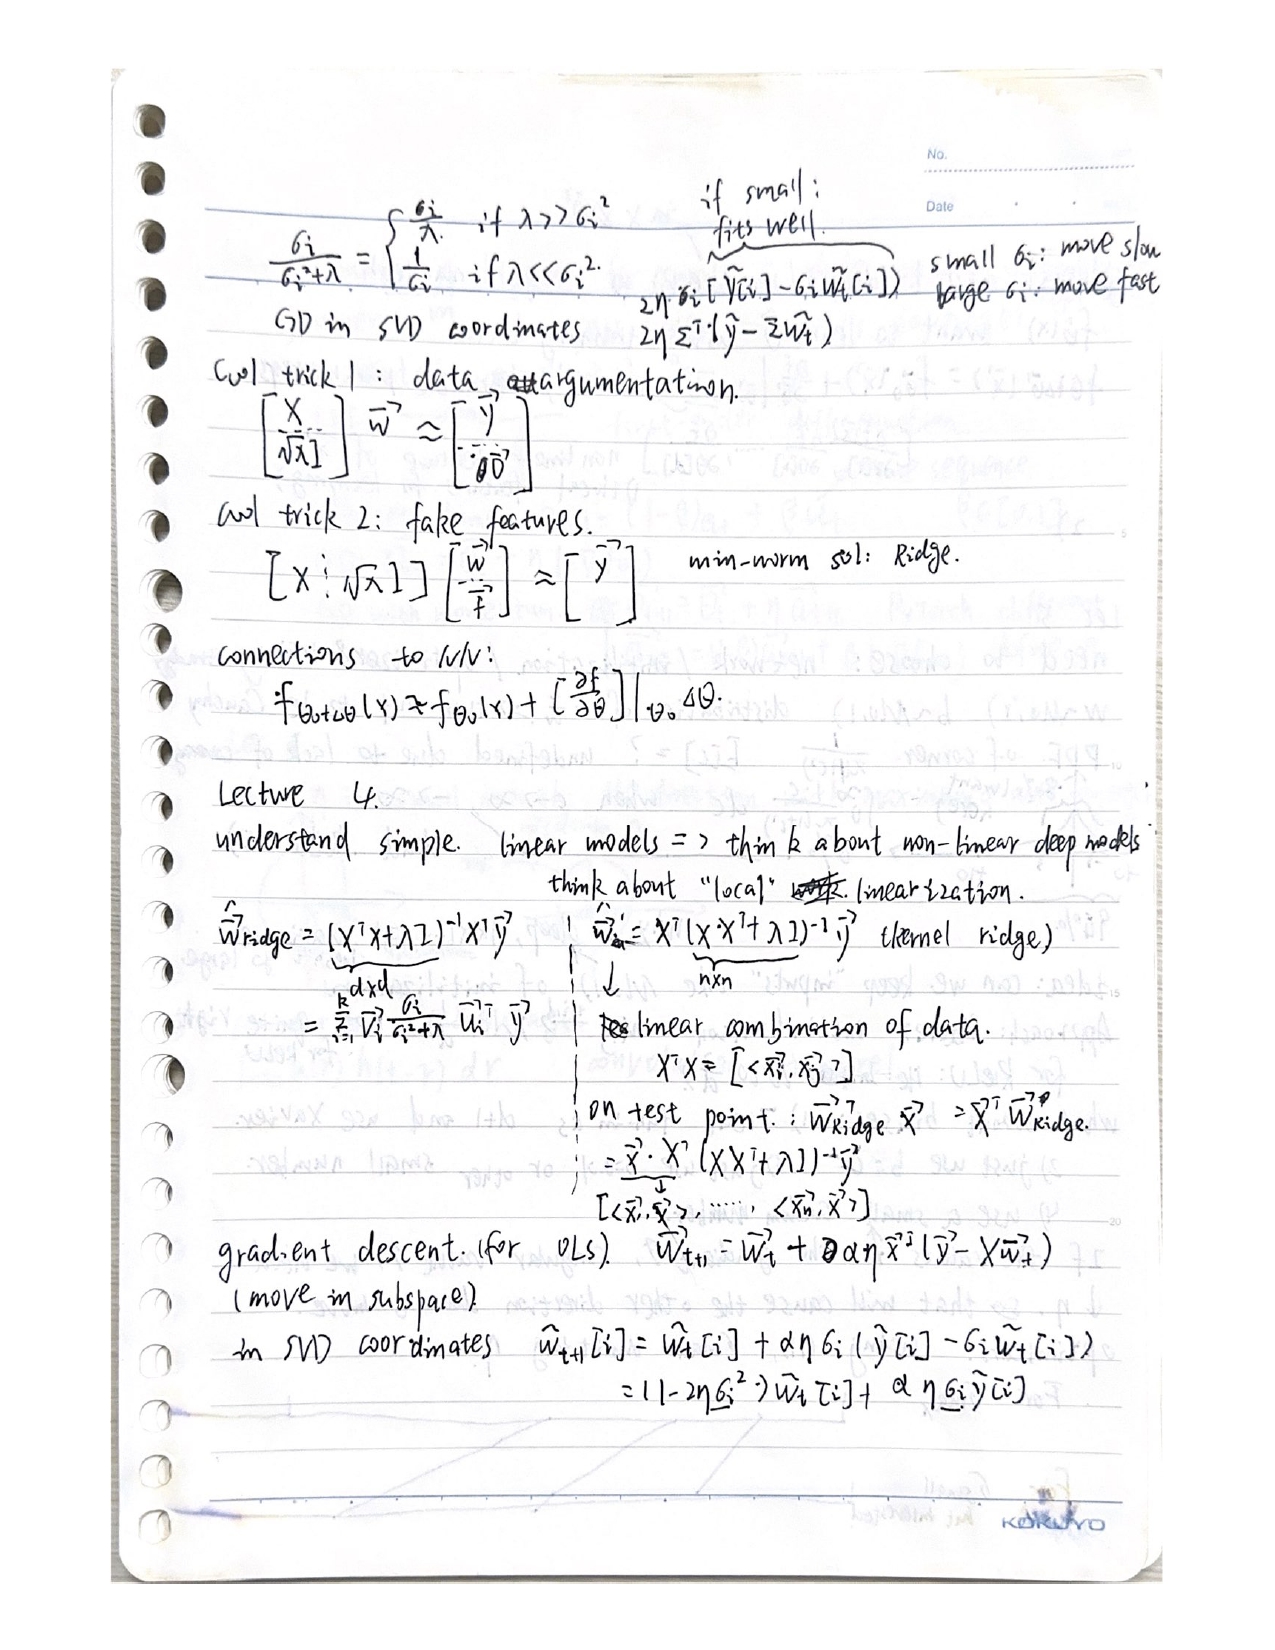 No.
Date
σi/(σi²+λ) = { σi/λ if λ>>σi²
1/σi if λ<<σi².
if small:
fits well.
2η σi [ỹ[i] - σi w̃t[i])
small σi: move slow
large σi: move fast
GD in SVD coordinates 2η Σᵀ(ỹ - Σw̃t)
Cool trick 1: data argumentation.
[X / √λI] w⃗ ≈ [y⃗ / 0⃗]
Cool trick 2: fake features.
[X ⋮ √λI] [w⃗ / f⃗] ≈ [y⃗] min-norm sol: Ridge.
connections to NN:
fθ₀+Δθ(x) ≈ fθ₀(x) + [∂f/∂θ]|θ₀ Δθ.
Lecture 4.
understand simple. linear models => think about non-linear deep models
think about "local" linearization.
ŵ⃗Ridge = (XᵀX+λI)⁻¹Xᵀy⃗
d×d
= Σᵏᵢ₌₁ v⃗i σi/(σi²+λ) u⃗iᵀ y⃗
ŵ⃗ = Xᵀ(X·Xᵀ+λI)⁻¹y⃗ (kernel ridge)
n×n
↓
linear combination of data.
XᵀX = [<x⃗i, x⃗j>]
on test point: w⃗Ridgeᵀ x⃗ = x⃗ᵀ w⃗Ridge.
= x⃗·Xᵀ(XXᵀ+λI)⁻¹y⃗
↓
[<x⃗, x⃗>, ......, <x⃗n, x⃗>]
gradient descent. (for OLS). w⃗t+1 = w⃗t + αηx⃗ᵀ(y⃗ - Xw⃗t)
(move in subspace)
in SVD coordinates w̃t+1[i] = w̃t[i] + αησi(ỹ[i] - σiw̃t[i])
= (1-2ησi²)w̃t[i] + αησiỹ[i]
KOKUYO